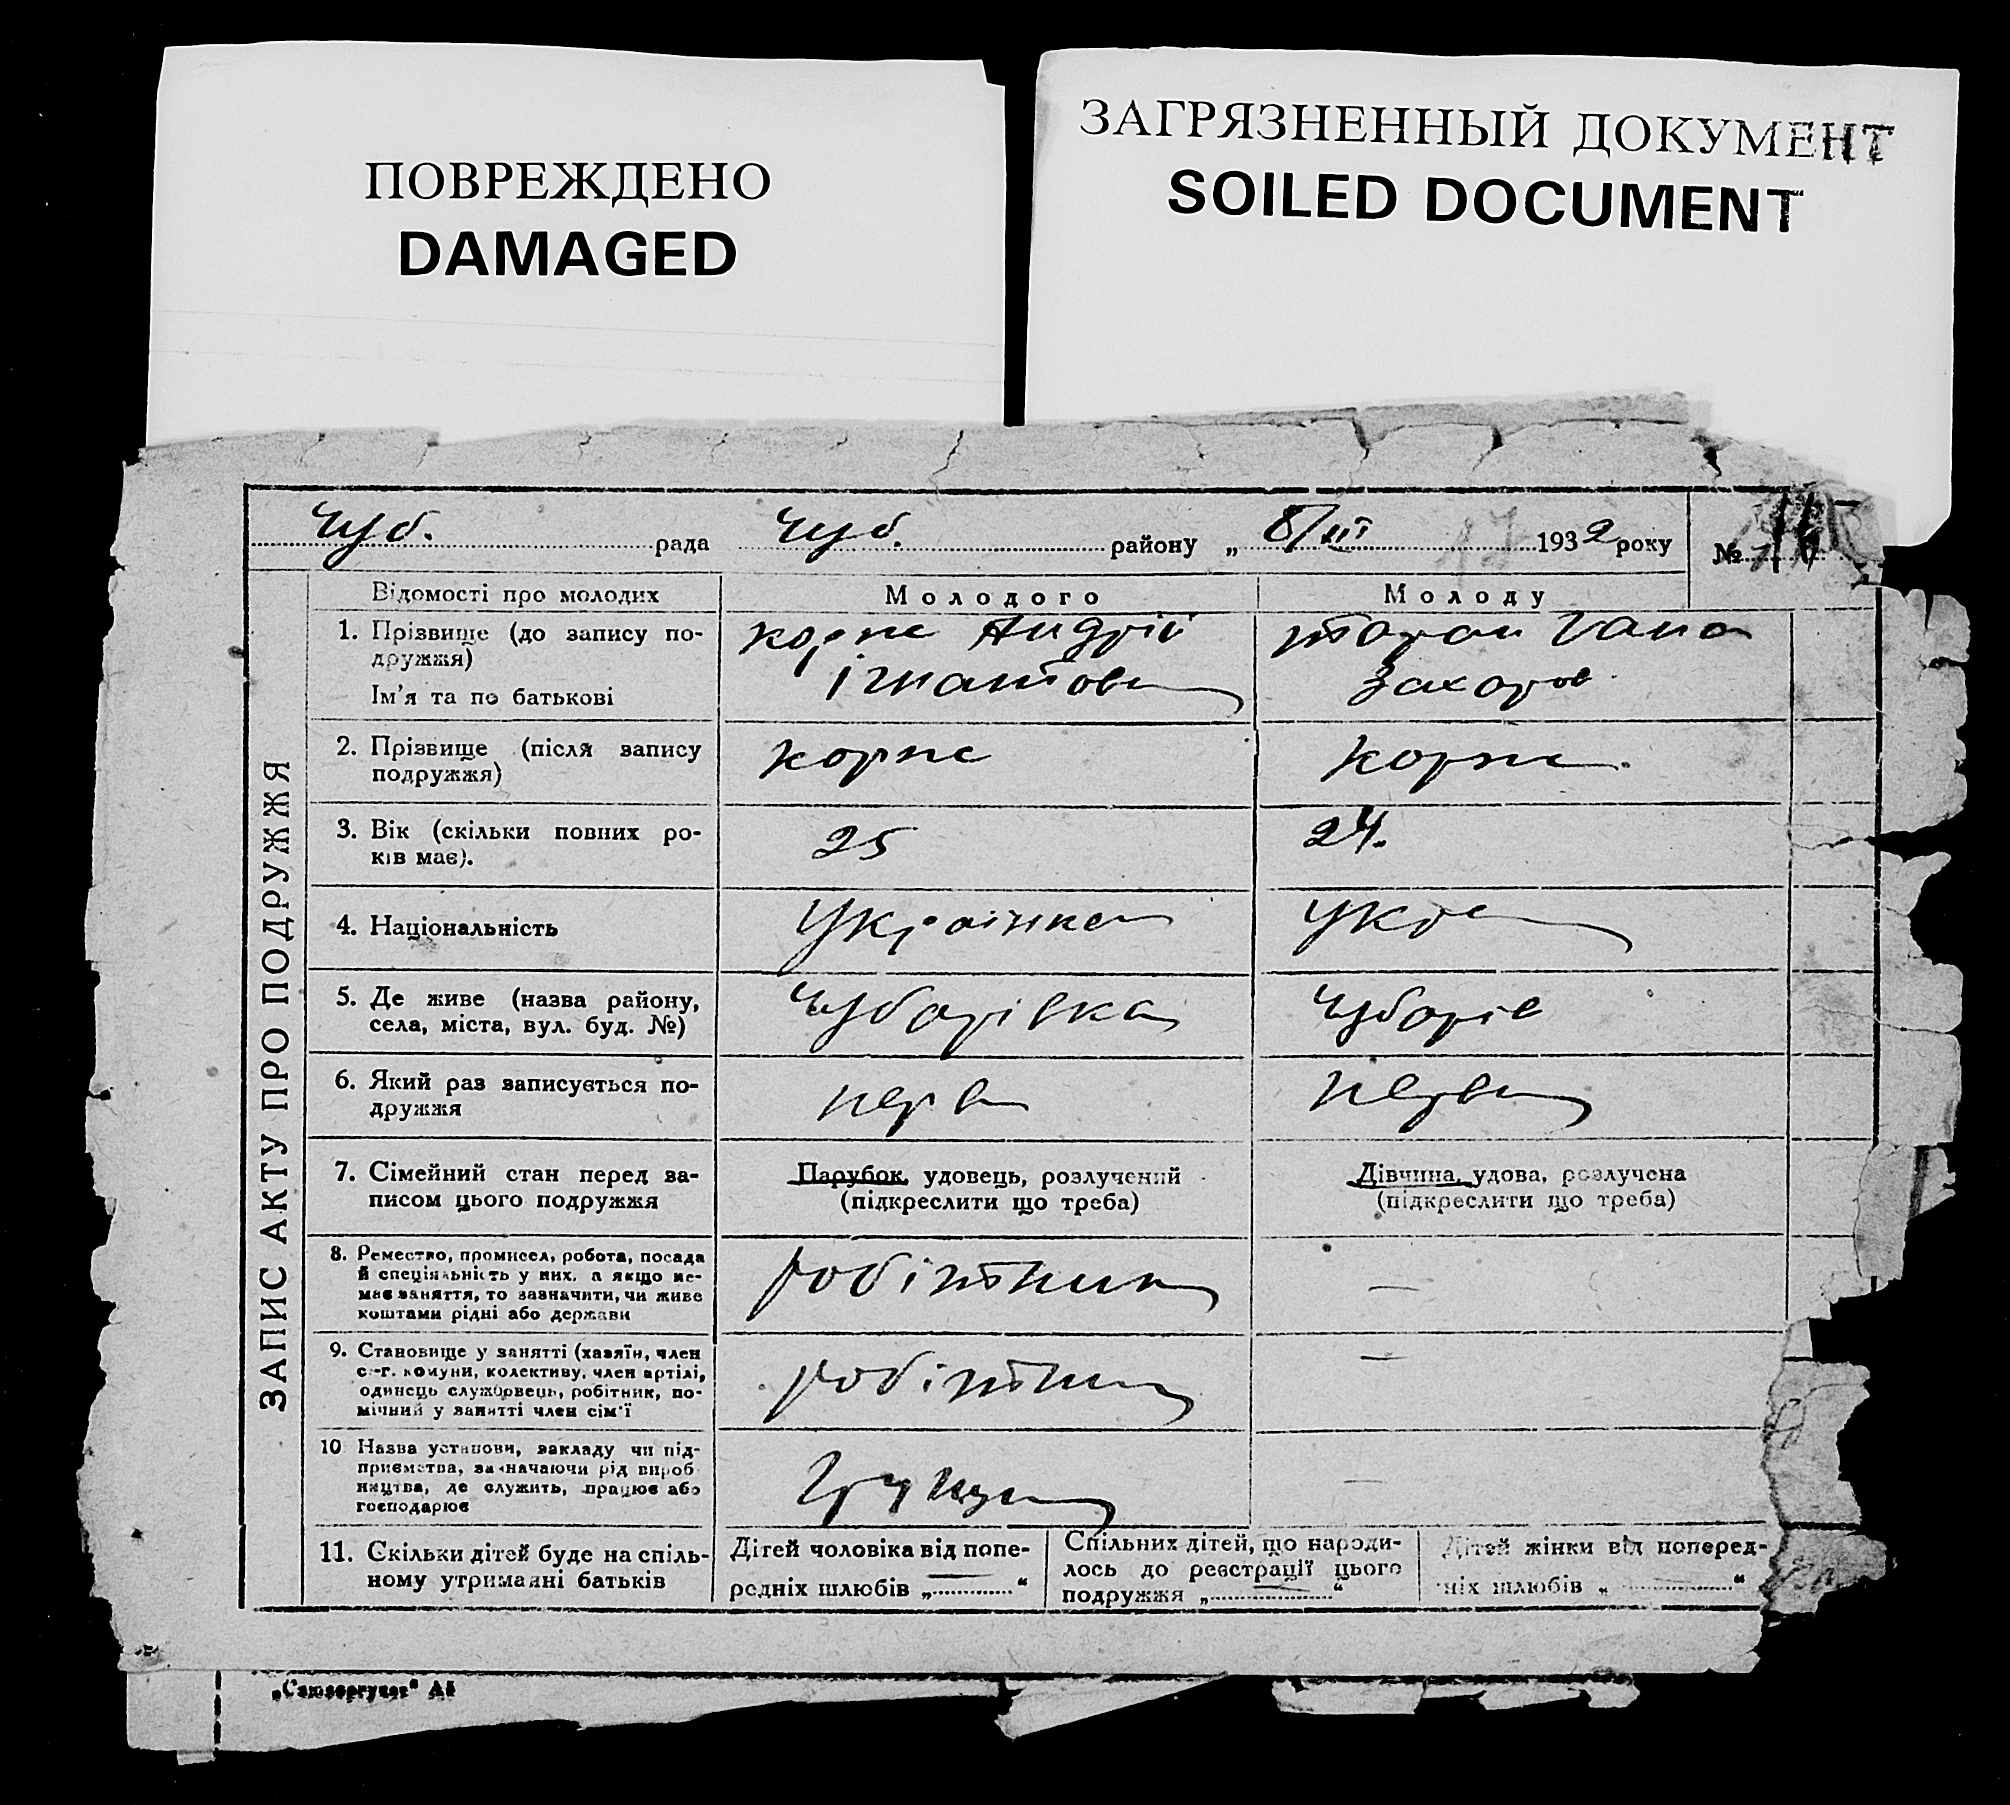 ПОВРЕЖДЕНО
DAMAGED
ЗАГРЯЗНЕННЫЙ ДОКУМЕНТ
SOILED DOCUMENT
Чуб. рада Чуб. району „ 8/III 1932 року №
ЗАПИС АКТУ ПРО ПОДРУЖЖЯ
Відомості про молодих Молодого Молоду
1. Прізвище (до запису по-
дружжя)
Ім'я та по батькові
Корж Андрій
Ігнатов
Таран Гана
Захаров
2. Прізвище (після запису
подружжя)
Корж
Корж
3. Вік (скільки повних ро-
ків має).
25
24.
4. Національність
Українка
Укр
5. Де живе (назва району,
села, міста, вул. буд. №)
Чубарівка
Чубарів
6. Який раз записується по-
дружжя
перв
перв
7. Сімейний стан перед за-
писом цього подружжя
Парубок, удовець, розлучений
(підкреслити що треба)
Дівчина, удова, розлучена
(підкреслити що треба)
8. Ремество, промисел, робота, посада
й спеціяльність у них, а якщо не-
має заняття, то зазначити, чи живе
коштами рідні або держави
робітник
—
9. Становище у занятті (хазяїн, член
с.-г. комуни, колективу, член артілі,
одинець службовець, робітник, по-
мічний у занятті член сім'ї
робітник
—
10 Назва установи, закладу чи під-
приємства, зазначаючи рід вироб
ництва, де служить, працює або
господарює
—
11. Скільки дітей буде на спіль-
ному утриманні батьків
Дітей чоловіка від попе-
редніх шлюбів „ — “
Спільних дітей, що народи-
лось до реєстрації цього
подружжя „ — “
Дітей жінки від поперед-
ніх шлюбів „ — “